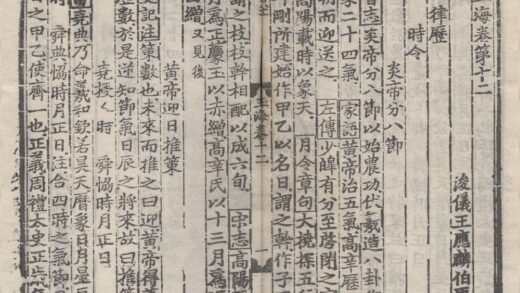 海卷第十二
浚儀王應麟伯厚
律歷
時令
炎帝分八節
晉志炎帝分八節以始農功伏羲造八卦
家二十四氣 家語黄帝治五氣高辛歷
而迎送之 左傳少皥有分至啓閉之
高陽載時以象天 月令章句大撓探五
剛所建始作甲乙以名日謂之幹作子
玉海卷十二 一
謂之枝枝幹相配以成六旬 宋志高陽
月為正薦玉以赤繒高辛氏以十三月為
繒 又見後
黄帝迎日推策
史記注策數也未來而推之曰迎黄帝得
虚數於是逆知節氣日辰之將來故曰推
堯授人時 舜協時月正日
堯典乃命羲和欽若昊天曆象日月星
舜典協時月正日注合四時之氣節
之甲乙使齊一也正義周禮太史正歲年